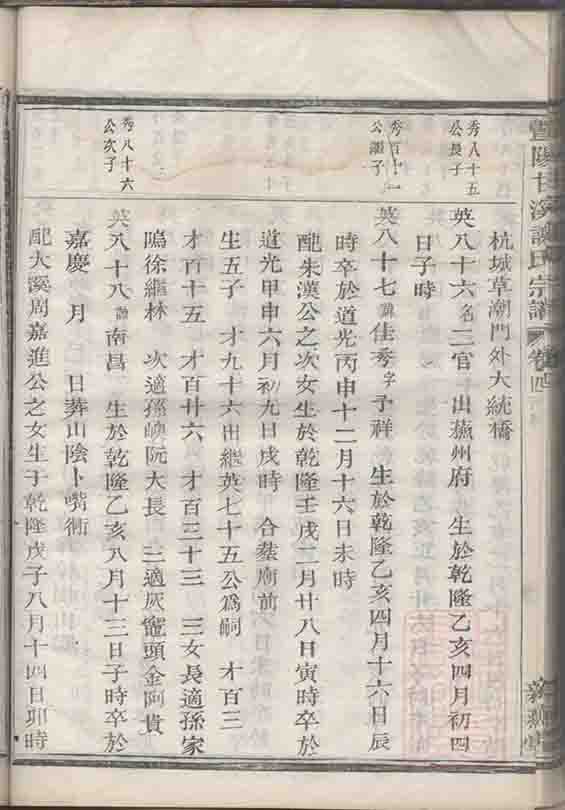 暨陽甘溪 氏宗譜 卷四
杭城草潮門外大統橋
秀八十五公長子
英八十六名三官 出蕪州府 生於乾隆乙亥四月初四
日子時
秀百十一公 子
英八十七諱佳秀字予祥 生於乾隆乙亥四月十六日辰
時卒於道光丙申十二月十六日未時
配朱漢公之次女生於乾隆壬戌二月廿八日寅時卒於
道光甲申六月初九日戌時 合墓廟前
生五子 才九十六出繼英七十五公爲嗣 才百三
才百十五 才百廿六 才百三十三 三女長適孫家
隖徐繼林 次適孫嶴阮大長 三適灰竈頭金阿貴
秀八十六公次子
英八十八諱南昌 生於乾隆乙亥八月十三日子時卒於
嘉慶 月 日葬山陰卜嘴衕
配大溪周嘉進公之女生于乾隆戊子八月十四日卯時